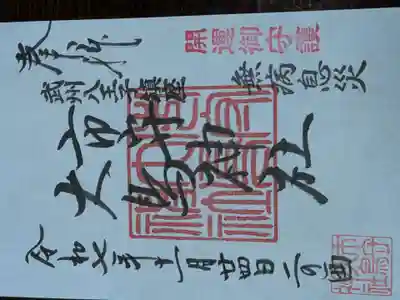 奉拝
開運御守護
武州八王子鎮座
無病息災
市守
大鳥神社
令和七年十一月廿四日二の酉